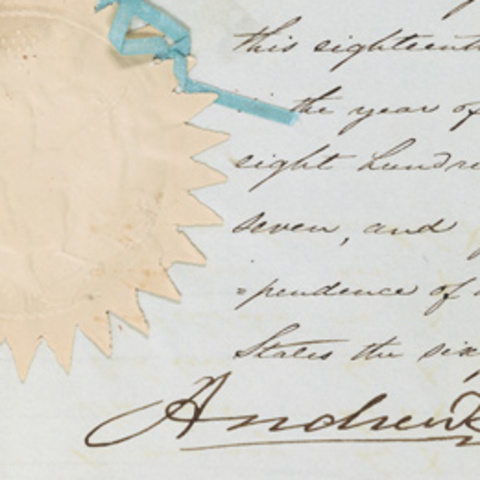 this eighteenth
the year of
eight hundre
seven, and
=pendence of
States the six
Andrew